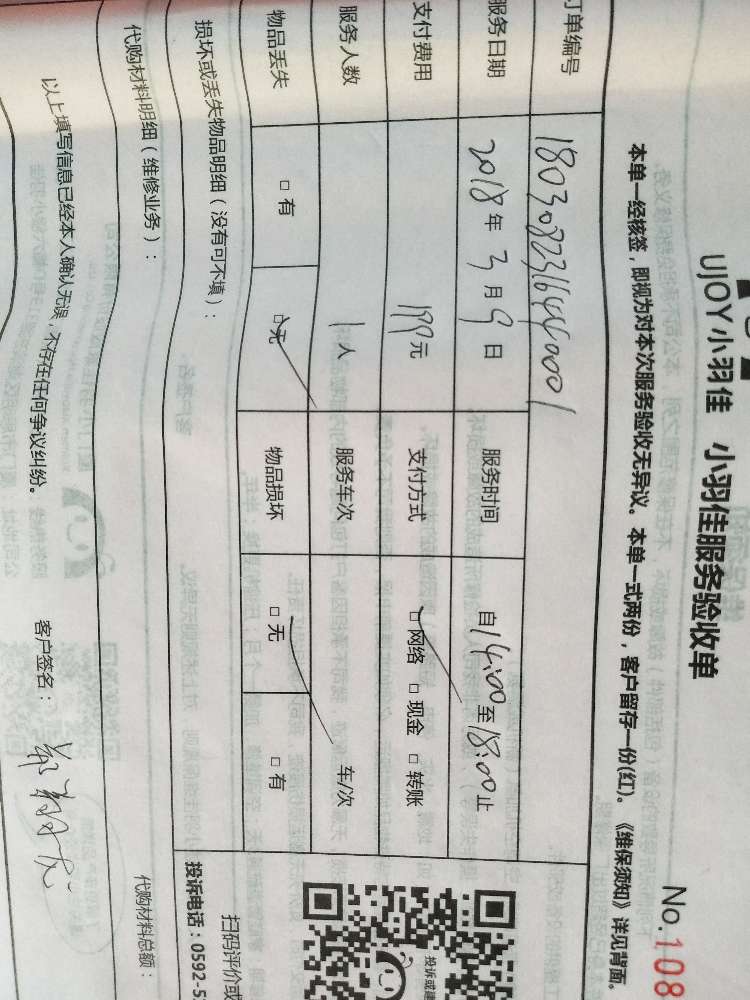 UJOY小羽佳 小羽佳服务验收单
No.108
本单一经核签，即视为对本次服务验收无异议。本单一式两份，客户留存一份(红)。《维保须知》详见背面。
订单编号 18030823164440001
服务日期 2018年3月9日 服务时间 自14:00至18:00止
支付费用 199元 支付方式 □网络 □现金 □转账
服务人数 1人 服务车次 车/次
物品丢失 □有 □无 物品损坏 □无 □有
损坏或丢失物品明细（没有可不填）：
投诉或建
扫码评价或
投诉电话：0592-5
代购材料明细（维修业务）：
代购材料总额：
以上填写信息已经本人确认无误，不存在任何争议纠纷。 客户签名：